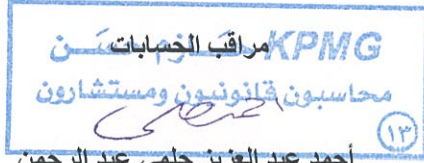 مراقب الحسابات
KPMG حازم حسن
محاسبون قانونيون ومستشارون
١٣
أحمد عبد العزيز حلمي عبد الرحمن